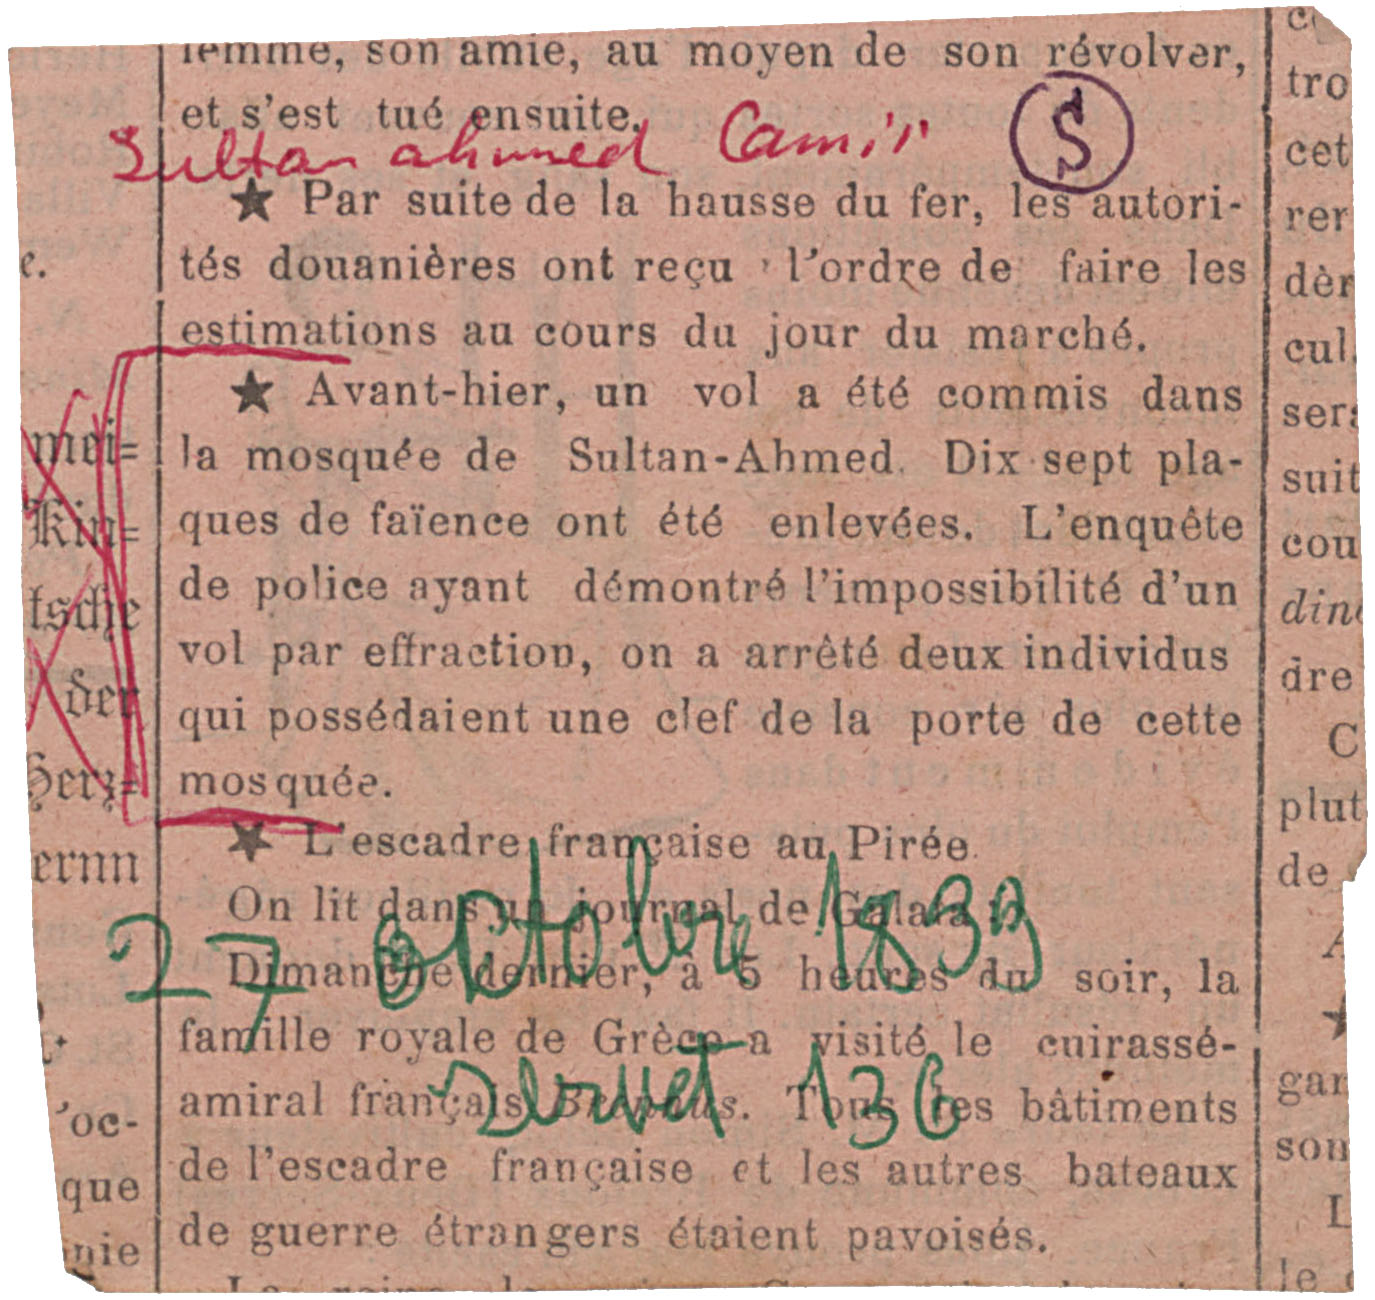 femme, son amie, au moyen de son révolver,
et s'est tué ensuite.
Sultan ahmed Camii
S
★ Par suite de la hausse du fer, les autori-
tés douanières ont reçu l'ordre de faire les
estimations au cours du jour du marché.
★ Avant-hier, un vol a été commis dans
la mosquée de Sultan-Ahmed. Dix sept pla-
ques de faïence ont été enlevées. L'enquête
de police ayant démontré l'impossibilité d'un
vol par effraction, on a arrêté deux individus
qui possédaient une clef de la porte de cette
mosquée.
★ L'escadre française au Pirée.
On lit dans un journal de Galata :
27 octobre 1899
Dimanche dernier, à 5 heures du soir, la
famille royale de Grèce a visité le cuirassé-
Servet 136
amiral français Brennus. Tous les bâtiments
de l'escadre française et les autres bateaux
de guerre étrangers étaient pavoisés.
e.
mei=
Kin=
tsche
der
Herz=
ernn
'oc-
que
nie
tro
cet
rer
dèr
cul.
sera
suit
cou
dre
C
plut
de
gar
son
L
le